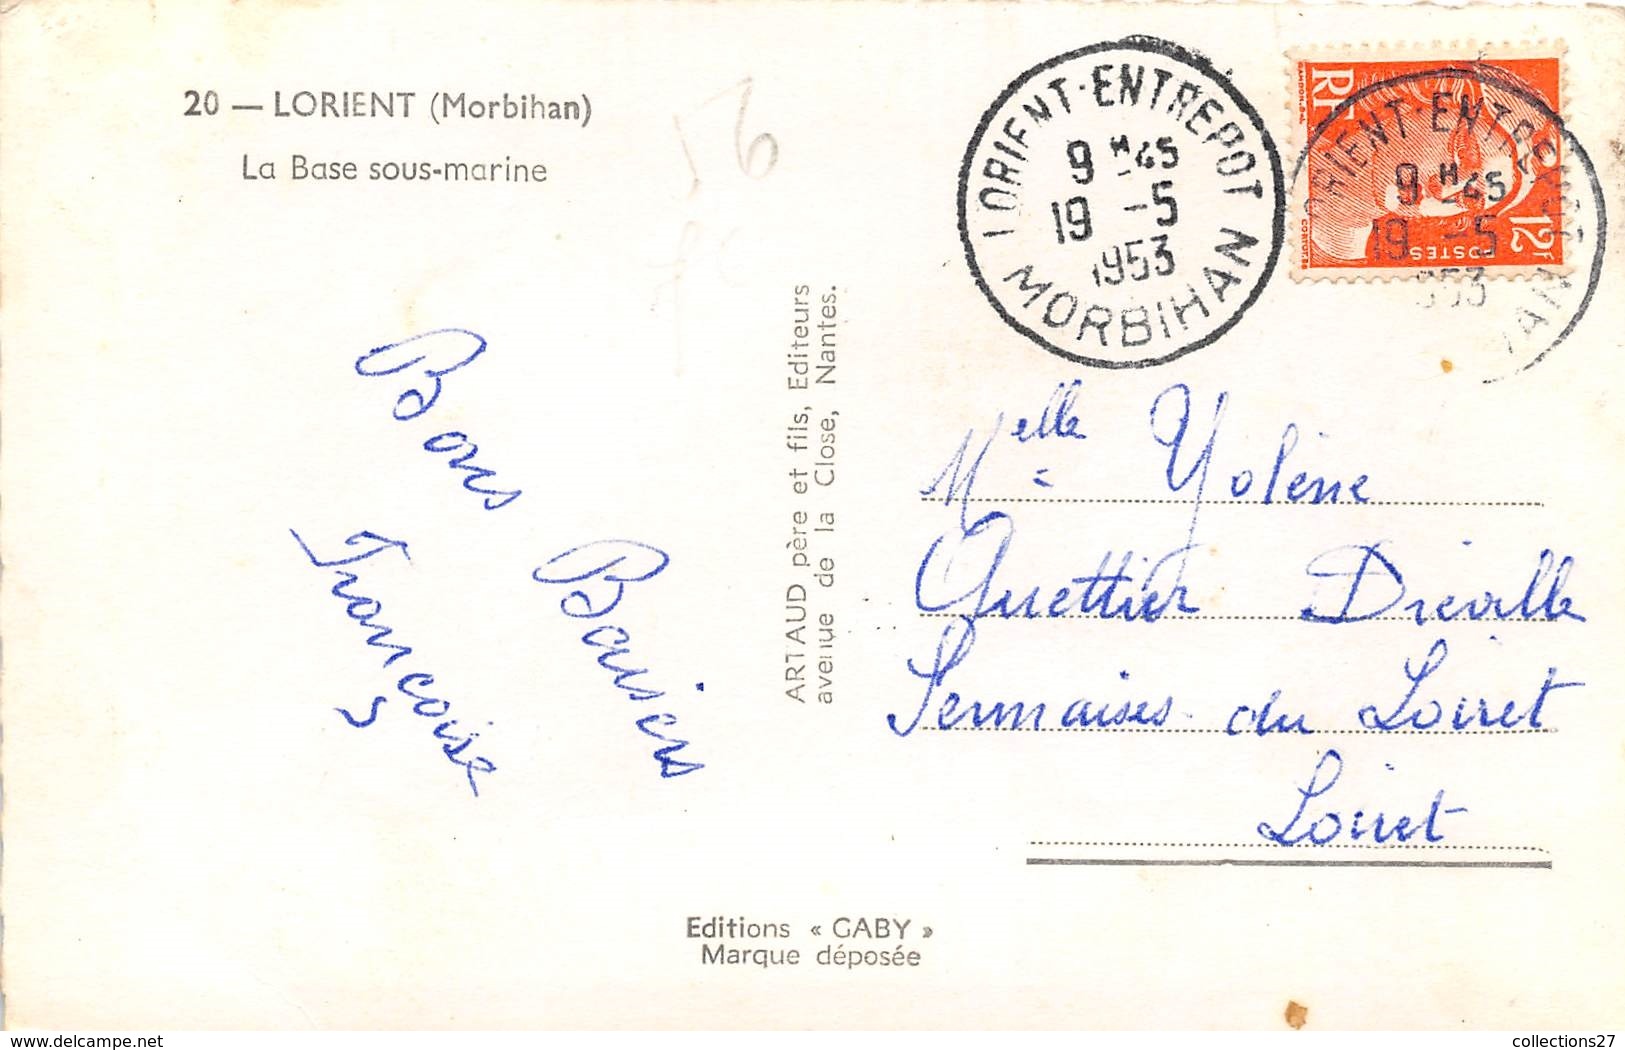 20 — LORIENT (Morbihan)
La Base sous-marine
56
Bons Baisers
Françoise
ARTAUD père et fils, Editeurs
avenue de la Close, Nantes.
Editions « GABY »
Marque déposée
LORIENT-ENTREPOT
9 H 45
19 -5
1953
MORBIHAN
RF
12F
POSTES
LORIENT-ENTREPOT
9 H 45
19 -5
1953
Melle Yolène
Quettier Dréville
Sermaises du Loiret
Loiret
delcampe.net
collections27